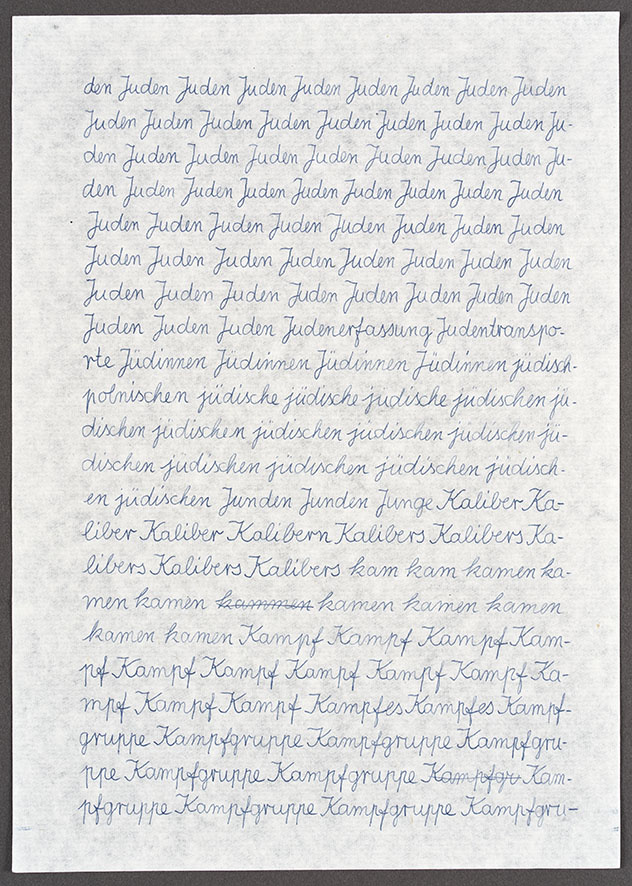 den Juden Juden Juden Juden Juden Juden Juden Juden
Juden Juden Juden Juden Juden Juden Juden Juden Ju-
den Juden Juden Juden Juden Juden Juden Juden Ju-
den Juden Juden Juden Juden Juden Juden Juden Juden
Juden Juden Juden Juden Juden Juden Juden Juden
Juden Juden Juden Juden Juden Juden Juden Juden
Juden Juden Juden Juden Juden Juden Juden Juden
Juden Juden Juden Judenerfassung Judentranspo-
rte Jüdinnen Jüdinnen Jüdinnen Jüdinnen jüdisch-
polnischen jüdische jüdische jüdische jüdischen jü-
dischen jüdischen jüdischen jüdischen jüdischen jü-
dischen jüdischen jüdischen jüdischen jüdisch-
en jüdischen Junden Junden Junge Kaliber Ka-
liber Kaliber Kalibern Kalibers Kalibers Ka-
libers Kalibers Kalibers kam kam kamen ka-
men kamen kammen kamen kamen kamen
kamen kamen Kampf Kampf Kampf Kam-
pf Kampf Kampf Kampf Kampf Kampf Ka-
mpf Kampf Kampf Kampfes Kampfes Kampf-
gruppe Kampfgruppe Kampfgruppe Kampfgru-
ppe Kampfgruppe Kampfgruppe Kampfgr Kam-
pfgruppe Kampfgruppe Kampfgruppe Kampfgru-